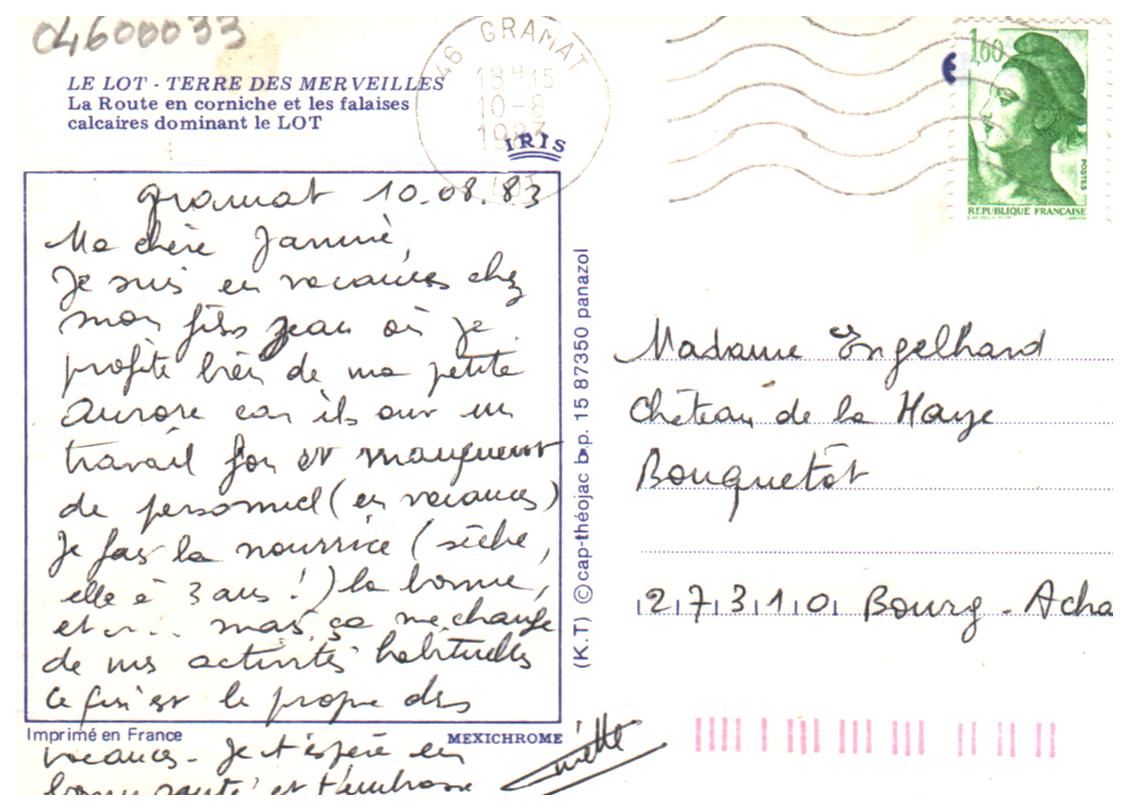 04600033
LE LOT - TERRE DES MERVEILLES
La Route en corniche et les falaises
calcaires dominant le LOT
46 GRAMAT
18H15
10-8
1983
LOT
IRIS
1,60
POSTES
REPUBLIQUE FRANÇAISE
Gramat 10.08.83
Ma chère Janine,
Je suis en vacances chez
mon fils Jean où je
profite bien de ma petite
Aurore car ils ont un
travail fou et manquent
de personnel (en vacances)
Je fais la nourrice (sèche,
elle a 3 ans !) la bonne,
et ... mais ça me change
de mes activités habituelles
ce qui est le propre des
vacances - Je t'espère en
bonne santé et t'embrasse
(K.T) © cap-théojac b.p. 15 87350 panazol
Madame Engelhard
Château de la Haye
Bouquetôt
27310 Bourg - Acha
Imprimé en France
MEXICHROME